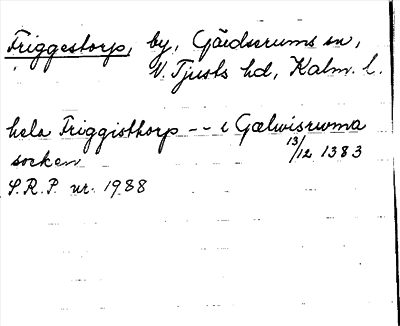 Friggestorp, by, Gärdserums sn,
N. Tjusts hd, Kalm. l.
hela Friggisthorp -- i Gælwisruma
socken 13/12 1383
S.R.P. nr. 1988